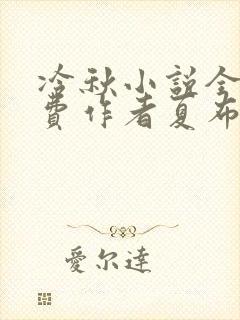 冷秋小説全
費作者夏布
愛尔達